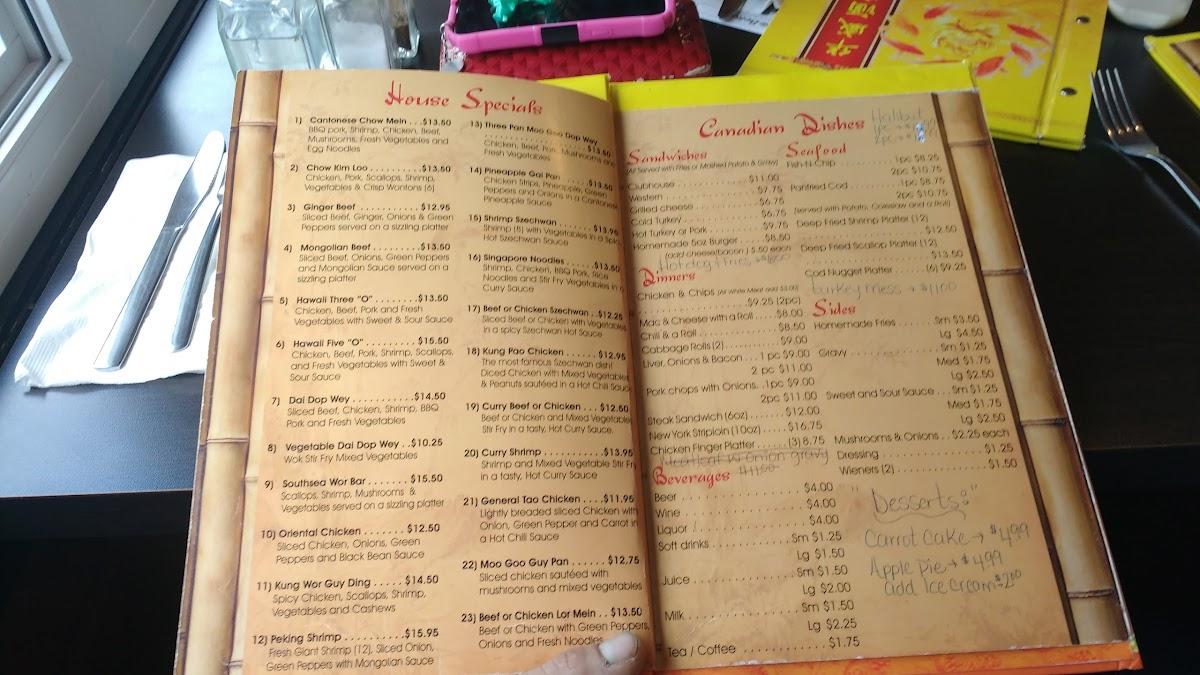 House Specials
1) Cantonese Chow Mein . . .$13.50
BBQ pork, Shrimp, Chicken, Beef,
Mushrooms, Fresh Vegetables and
Egg Noodles
2) Chow Kim Loo . . . . . . . . .$13.50
Chicken, Pork, Scallops, Shrimp,
Vegetables & Crisp Wontons (6)
3) Ginger Beef . . . . . . . . . .$12.95
Sliced Beef, Ginger, Onions & Green
Peppers served on a sizzling platter
4) Mongolian Beef . . . . . . . .$13.50
Sliced Beef, Onions, Green Peppers
and Mongolian Sauce served on a
sizzling platter
5) Hawaii Three "O" . . . . . . . .$13.50
Chicken, Beef, Pork and Fresh
Vegetables with Sweet & Sour Sauce
6) Hawaii Five "O" . . . . . . . .$15.50
Chicken, Beef, Pork, Shrimp, Scallops,
and Fresh Vegetables with Sweet &
Sour Sauce
7) Dai Dop Wey . . . . . . . . . .$14.50
Sliced Beef, Chicken, Shrimp, BBQ
Pork and Fresh Vegetables
8) Vegetable Dai Dop Wey . .$10.25
Wok Stir Fry Mixed Vegetables
9) Southsea Wor Bar . . . . . .$15.50
Scallops, Shrimp, Mushrooms &
Vegetables served on a sizzling platter
10) Oriental Chicken . . . . . . . $12.50
Sliced Chicken, Onions, Green
Peppers and Black Bean Sauce
11) Kung Wor Guy Ding . . . . . $14.50
Spicy Chicken, Scallops, Shrimp,
Vegetables and Cashews
12) Peking Shrimp . . . . . . . . . .$15.95
Fresh Giant Shrimp (12), Sliced Onion,
Green Peppers with Mongolian Sauce
13) Three Pan Moo Goo Dop Wey
. . . . . . . . . . . . . . . . .$13.50
Chicken, Beef, Pork, Mushrooms and
Fresh Vegetables
14) Pineapple Gai Pan . . . . .$13.50
Chicken Strips, Pineapple, Green
Peppers and Onions in a Cantonese
Pineapple Sauce
15) Shrimp Szechwan . . . . . .$13.95
Shrimp (8) with Vegetables in a Spicy
Hot Szechwan Sauce
16) Singapore Noodles . . . . .$13.50
Shrimp, Chicken, BBQ Pork, Rice
Noodles and Stir Fry Vegetables in a
Curry Sauce
17) Beef or Chicken Szechwan .$12.25
Sliced Beef or Chicken with Vegetables
in a spicy Szechwan Hot Sauce
18) Kung Pao Chicken . . . . . .$12.95
The most famous Szechwan dish!
Diced Chicken with Mixed Vegetables
& Peanuts sautéed in a Hot Chili Sauce
19) Curry Beef or Chicken . . . $12.50
Beef or Chicken and Mixed Vegetables
Stir Fry in a tasty, Hot Curry Sauce.
20) Curry Shrimp . . . . . . . . .$13.95
Shrimp and Mixed Vegetable Stir Fry
in a tasty, Hot Curry Sauce
21) General Tao Chicken . . . .$11.95
Lightly breaded sliced Chicken with
Onion, Green Pepper and Carrot in
a Hot Chili Sauce
22) Moo Goo Guy Pan . . . . . . $12.75
Sliced chicken sautéed with
mushrooms and mixed vegetables
23) Beef or Chicken Lor Mein . . $13.50
Beef or Chicken with Green Peppers,
Onions and Fresh Noodles
Canadian Dishes
Halibut
1pc
2pc
Sandwiches
(All Served with Fries or Mashed Potato & Gravy)
Clubhouse . . . . . . . . . . . $11.00
Western . . . . . . . . . . . . $7.75
Grilled cheese . . . . . . . . . $6.75
Cold Turkey . . . . . . . . . . $6.75
Hot Turkey or Pork . . . . . . . $9.75
Homemade 5oz Burger . . . . . .$8.50
(add cheese/bacon) $.50 each
Hot dog & Fries
Dinners
Chicken & Chips (All White Meat add $3.00)
. . . . . . . . . . . . . .$9.25 (2pc)
Mac & Cheese with a Roll . . . . .$8.00
Chili & a Roll . . . . . . . . . . $8.50
Cabbage Rolls (2) . . . . . . . . .$9.00
Liver, Onions & Bacon . . . 1 pc $9.00
2 pc $11.00
Pork chops with Onions . .1pc $9.00
2pc $11.00
Steak Sandwich (6oz) . . . . . . $12.00
New York Striploin (10oz) . . . . $16.75
Chicken Finger Platter . . . . . . (3) 8.75
Meatloaf w onion gravy
$11.00
Beverages
Beer . . . . . . . . . . . . . . $4.00
Wine . . . . . . . . . . . . . . $4.00
Liquor . . . . . . . . . . . . . $4.00
Soft drinks . . . . . . . . . . Sm $1.25
Lg $1.50
Juice . . . . . . . . . . . . . Sm $1.50
Lg $2.00
Milk . . . . . . . . . . . . . . Sm $1.50
Lg $2.25
Tea / Coffee . . . . . . . . . . . . $1.75
Seafood
Fish-N-Chip . . . . . . . . . . 1pc $8.25
2pc $10.75
Panfried Cod . . . . . . . . . .1pc $8.75
2pc $10.95
(served with Potato, Coleslaw and a Roll)
Deep Fried Shrimp Platter (12)
. . . . . . . . . . . . . . . . $12.50
Deep Fried Scallop Platter (12)
. . . . . . . . . . . . . . . . $13.50
Cod Nugget Platter . . . . . . (6) $9.25
turkey mess → $11.00
Sides
Homemade Fries . . . . . . . Sm $3.50
Lg $4.50
Gravy . . . . . . . . . . . . . Sm $1.25
Med $1.75
Lg $2.50
Sweet and Sour Sauce . . . Sm $1.25
Med $1.75
Lg $2.50
Mushrooms & Onions . . $2.25 each
Dressing . . . . . . . . . . . . $1.25
Wieners (2) . . . . . . . . . . $1.50
"Desserts:"
Carrot Cake → $4.99
Apple pie → $4.99
add Ice Cream - 2.00